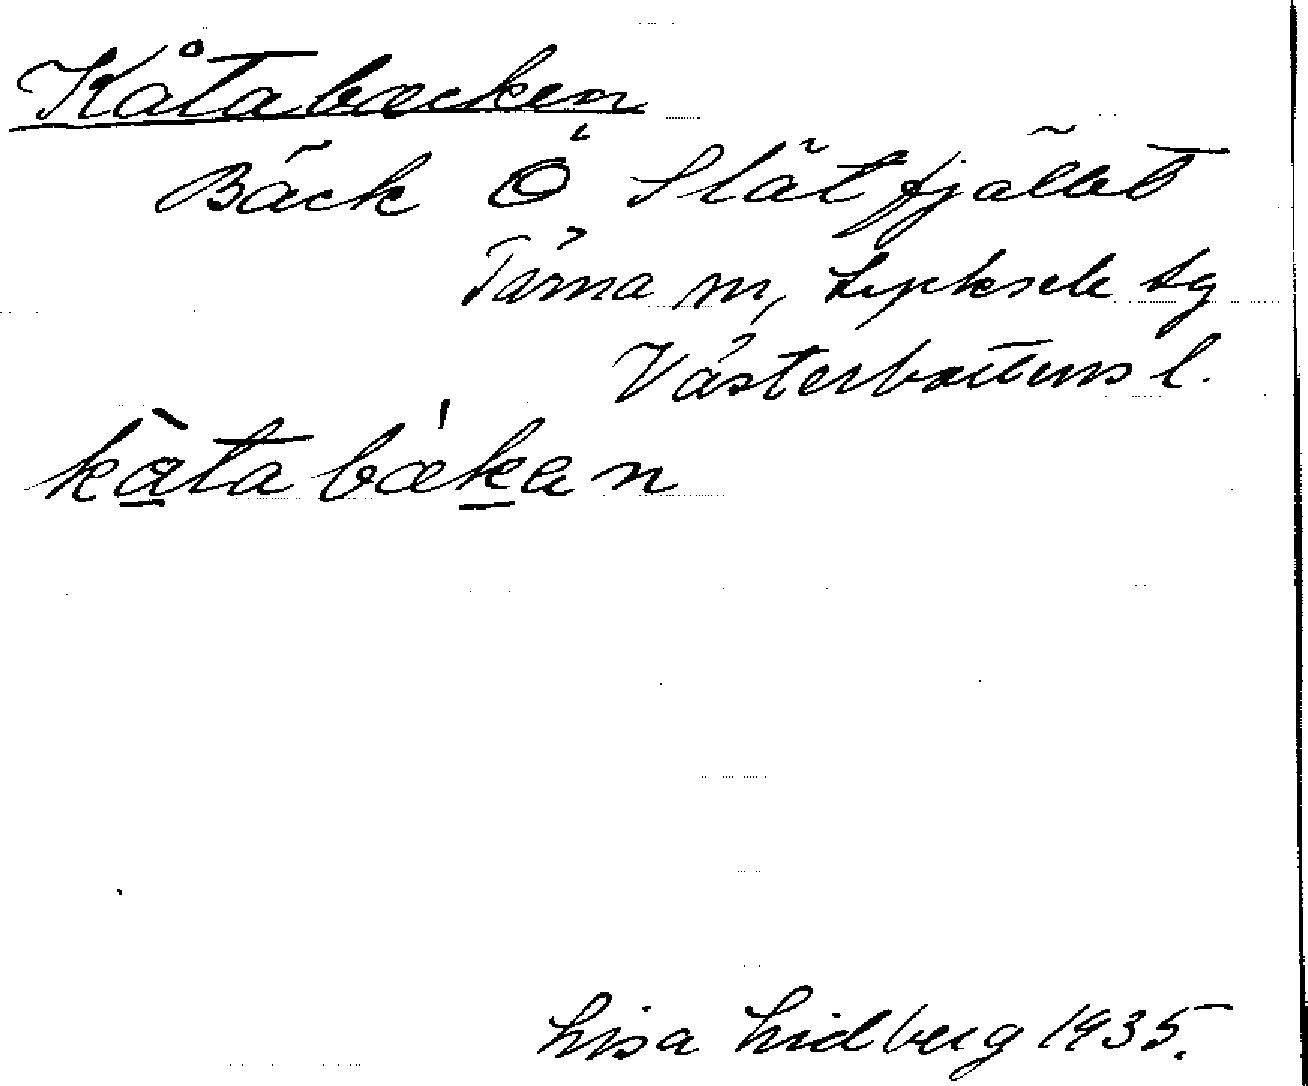 Kåtabæcken
Bäck Ö Slätfjället
Tärna sn, Lycksele lg
Västerbottens l.
kàta bǽkan
Lisa Lidberg 1935.